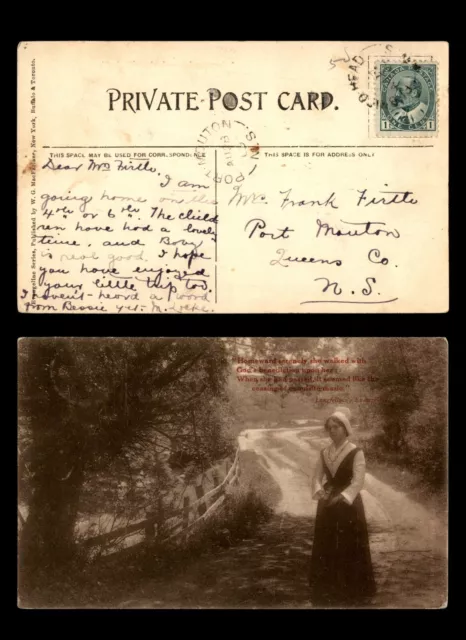 Evangeline Series, Published by W. G. MacFarlane, New York, Buffalo & Toronto.
PRIVATE POST CARD.
THIS SPACE MAY BE USED FOR CORRESPONDENCE
THIS SPACE IS FOR ADDRESS ONLY
HEAD
PORT MOUTON
N.S
1 1
Dear Mrs Firtle.
I am
going home on the
4th or 6th. The child
ren have had a lovely
time, and Boby
is real good. I hope
you have enjoyed
your little trip too.
I havent heard a word
from Bessie yet. M. Locke.
Mrs. Frank Firtle
Port Mouton
Queens Co.
N.S.
"Homeward serenely she walked with
God's benediction upon her;
When she had passed, it seemed like the
ceasing of exquisite music."
Longfellow